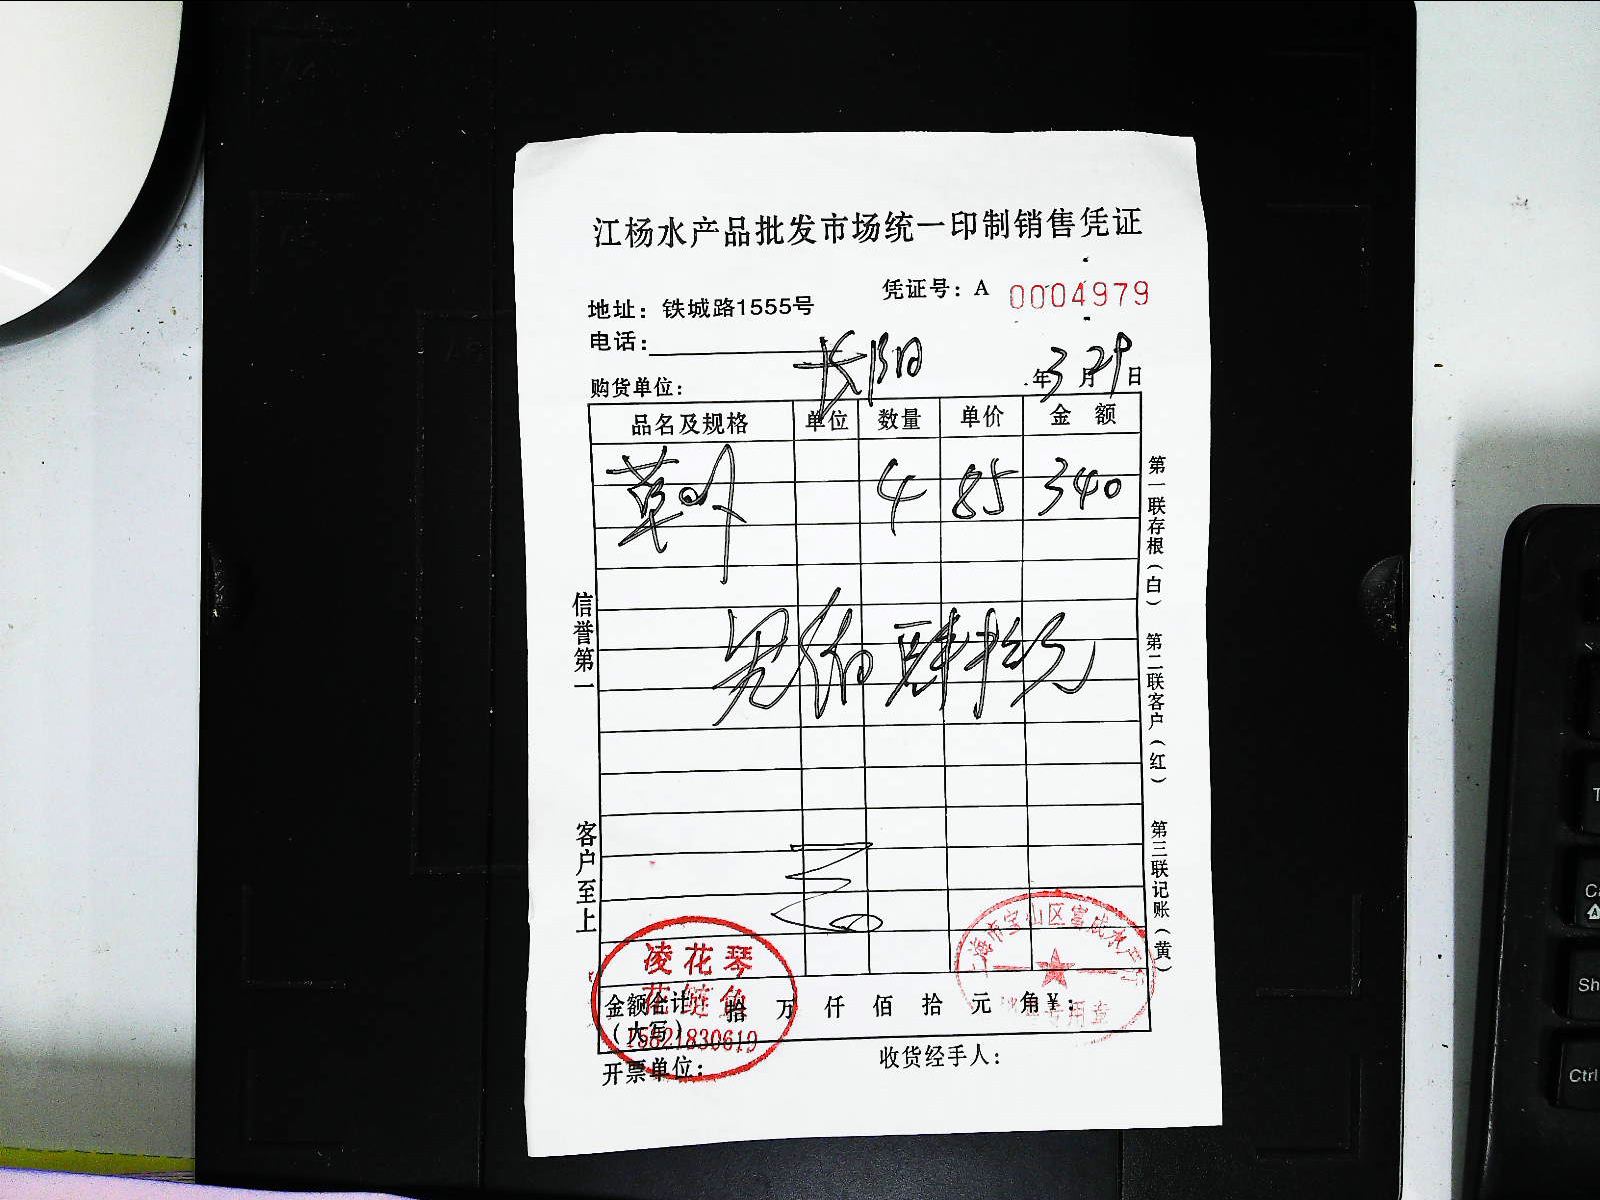 江杨水产品批发市场统一印制销售凭证
凭证号：A 0004979
地址：铁城路1555号
电话：
长阳
购货单位： 年3月29日
品名及规格 单位 数量 单价 金额
草 4 85 340
叁佰肆拾元
信誉第一
客户至上
第一联存根（白）
第二联客户（红）
第三联记账（黄）
凌花琴
花鲢鱼
15821830619
上海市宝山区富成水产行
专用章
金额合计（大写） 拾 万 仟 佰 拾 元 角 ¥：
开票单位： 收货经手人：